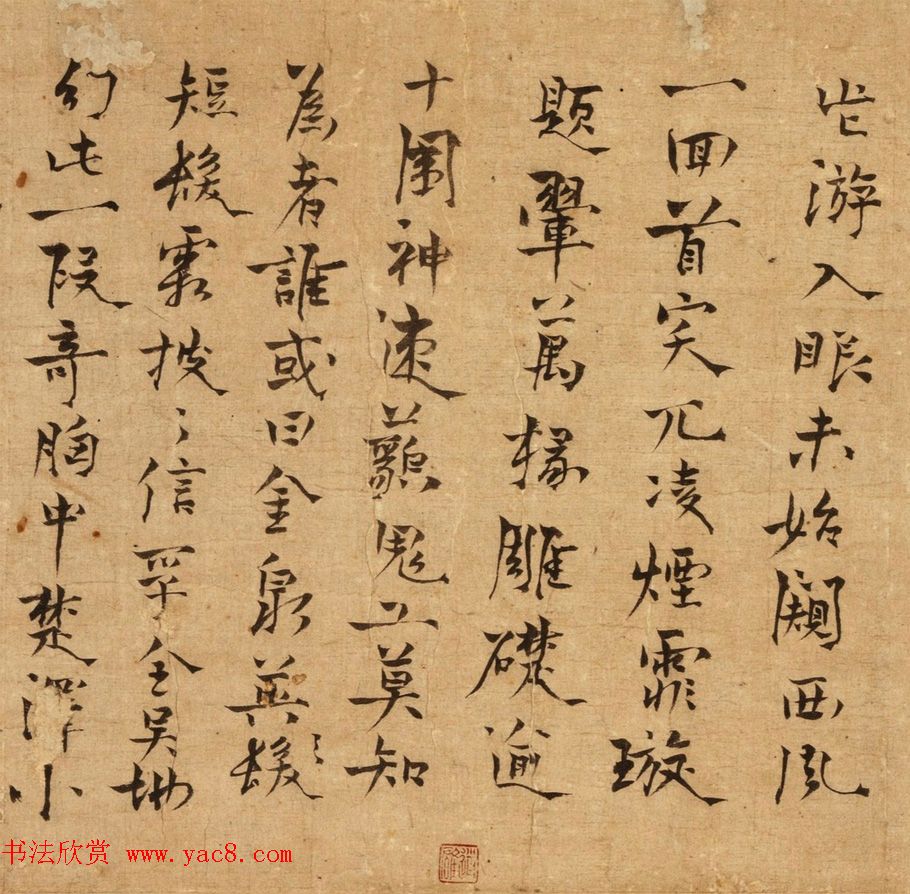 游入眼未始闚西風
一回首突兀凌煙霏璇
題翬萬椽雕礎逾
十圍神速藐鬼工莫知
為者誰或曰金泉英髮〻
短髮霜披〻信全吴地
幻此一段奇胸中楚澤小
书法欣赏 www.yac8.com